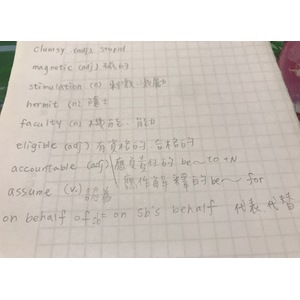 clumsy (adj) stupid
magnetic (adj) 磁的
stimulation (n) 刺激
hermit (n) 隱士
faculty (n) 機能、能力
eligible (adj) 有資格的 合格的
accountable (adj) 應負責任的 be~ to +N
應作解釋的 be~ for
assume (v.) 認為
on behalf of sb = on sb's behalf 代表 代替